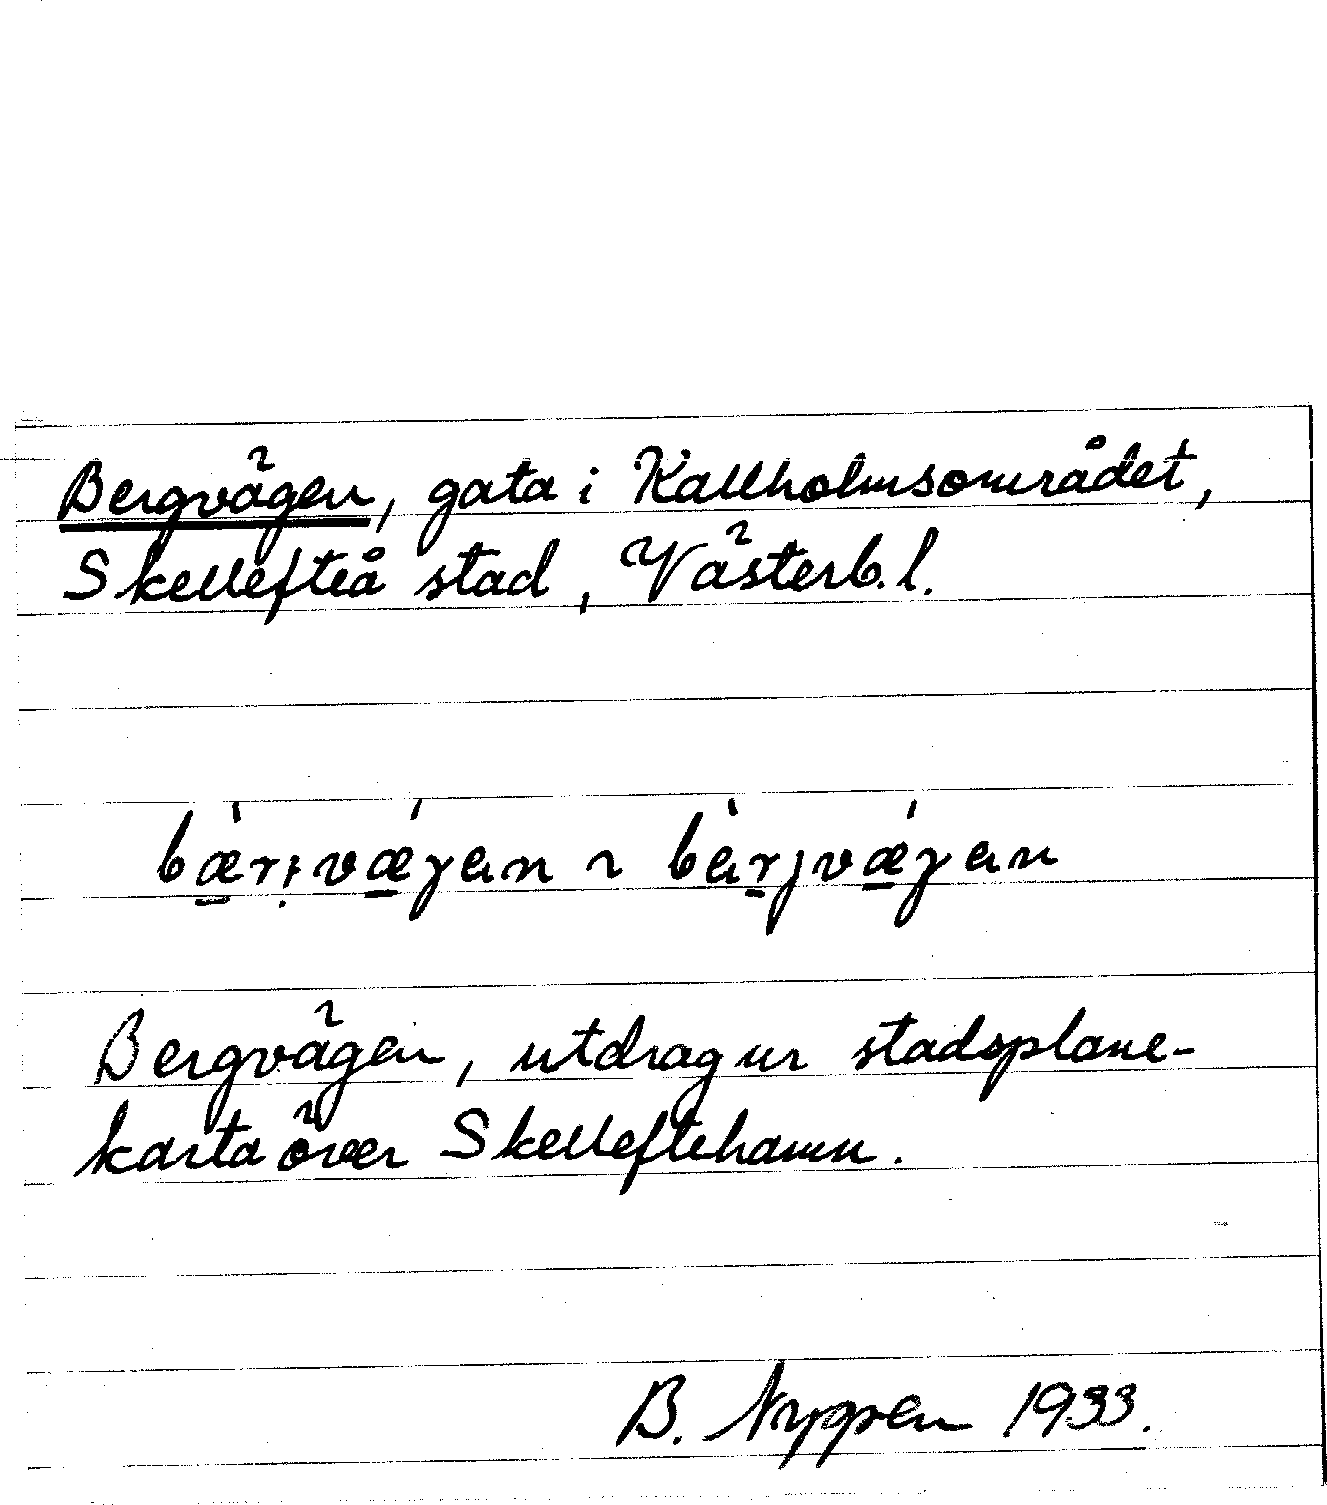 Bergvägen, gata i Kallholmsområdet,
Skellefteå stad, Västerb. l.
bæ̀rjvǽgen ~ bèrjvǽgen
Bergvägen, utdrag ur stadsplane-
karta över Skelleftehamn.
B. Nygren 1933.